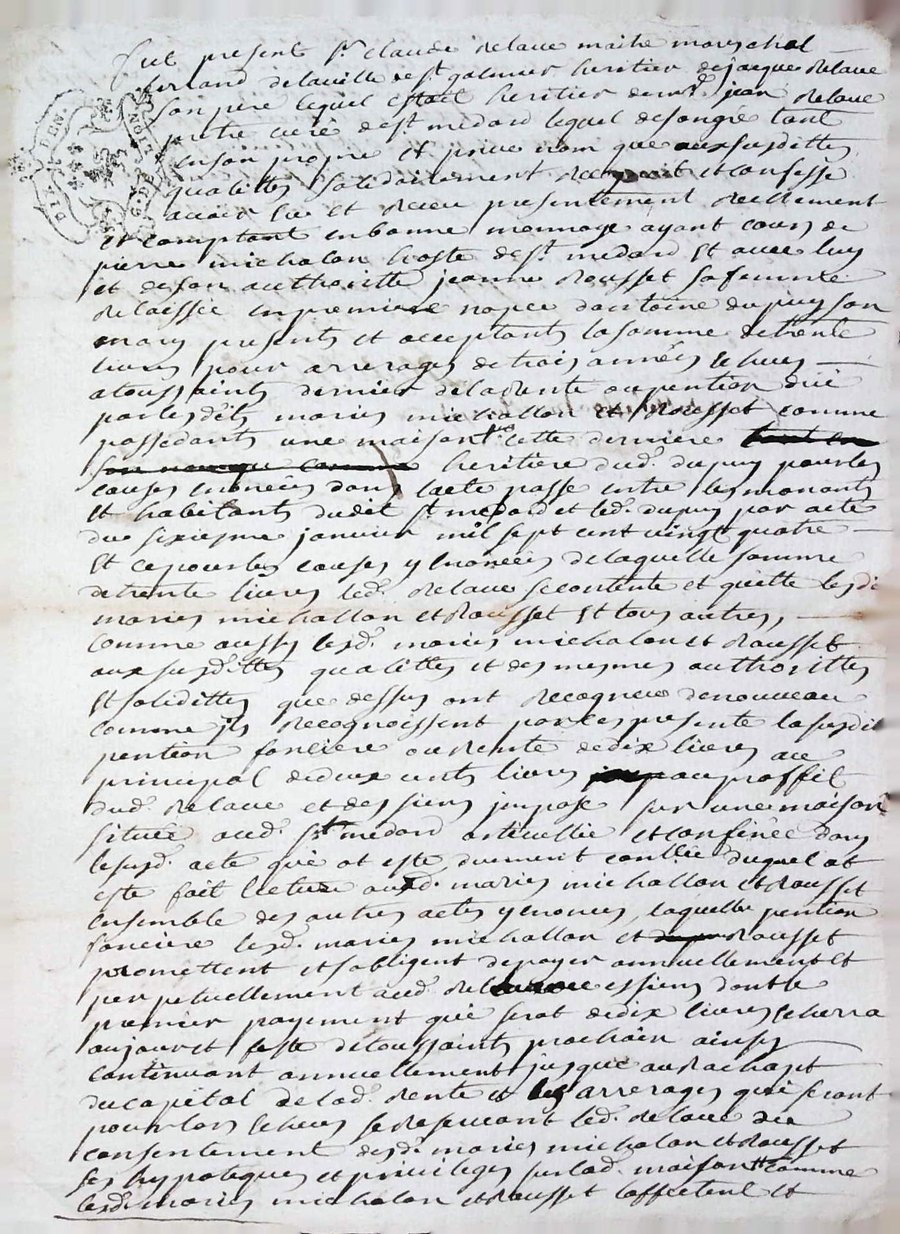 fut present Sr. claude relaue maitre mareschal
ferrand delauille de st galmier heritier de jacque relaue
son pere lequel estoit heritier de mr. jean relaue
pretre curé de st medard lequel desongré tant
enson propre et priué nom que aux susdittes
qualittes solidairement et confesse
auoir eu et receu presentement reellement
et comptant enbonne monnoye ayant cours de
pierre michalon hoste de st. medard et auec luy
et deson authoritte jeanne rousset safemme
relaissée enpremiere nopce dantoine dupuy son
mary presents et acceptants lasomme detrente
liures pour arrerages detrois années echues
atoussaints dernier delarente oupention düe
parlesdits mariés michallon et rousset comme
possedants une maison cette derniere
heritiere dud. dupuy pourles
causes enoncées dans lacte passé entre les manants
et habitants dudit st medard et led. dupuy par acte
du sixiesme januier mil sept cent vingt quatre
et cepourles causes y enoncées delaquelle somme
detrente liures led. relaue secontente et quitte lesdi
mariés michallon et rousset et tous autres,
comme aussy lesd. mariés michalon et rousset
aux susdittes qualittes et des mesmes authorittes
et solidittes que dessus ont recogneu denouveau
comme ils recognoissent parces presente lasusdi
pention fonciere ourente dedix liures au
principal dedeux cents liures au proffit
dud. relaue et des siens jmposé sur une maison
située aud. st medard articullée et confinée dans
lesusd. acte qui at esté duement conllée duquel at
esté fait lecture auxd. mariés michallon et rousset
ensemble des autres actes y enoncés, laquelle pention
fonciere lesd. mariés michallon et rousset
promettent et sobligent depayer annuellement et
perpetuellement aud. relaue et siens dontle
premier payement qui serat dedix liures echerra
aujour et feste detoussaints prochain ainsy
continuant annuellement jusque aurachapt
ducapital de lad. rente et arrerages qui seront
pourlors echeus sereseruant led. relaue du
consentement desd. mariés michalon et rousset
ses hypoteques et priuileges surlad. maison comme
lesd. mariés michalon et rousset laffectent et